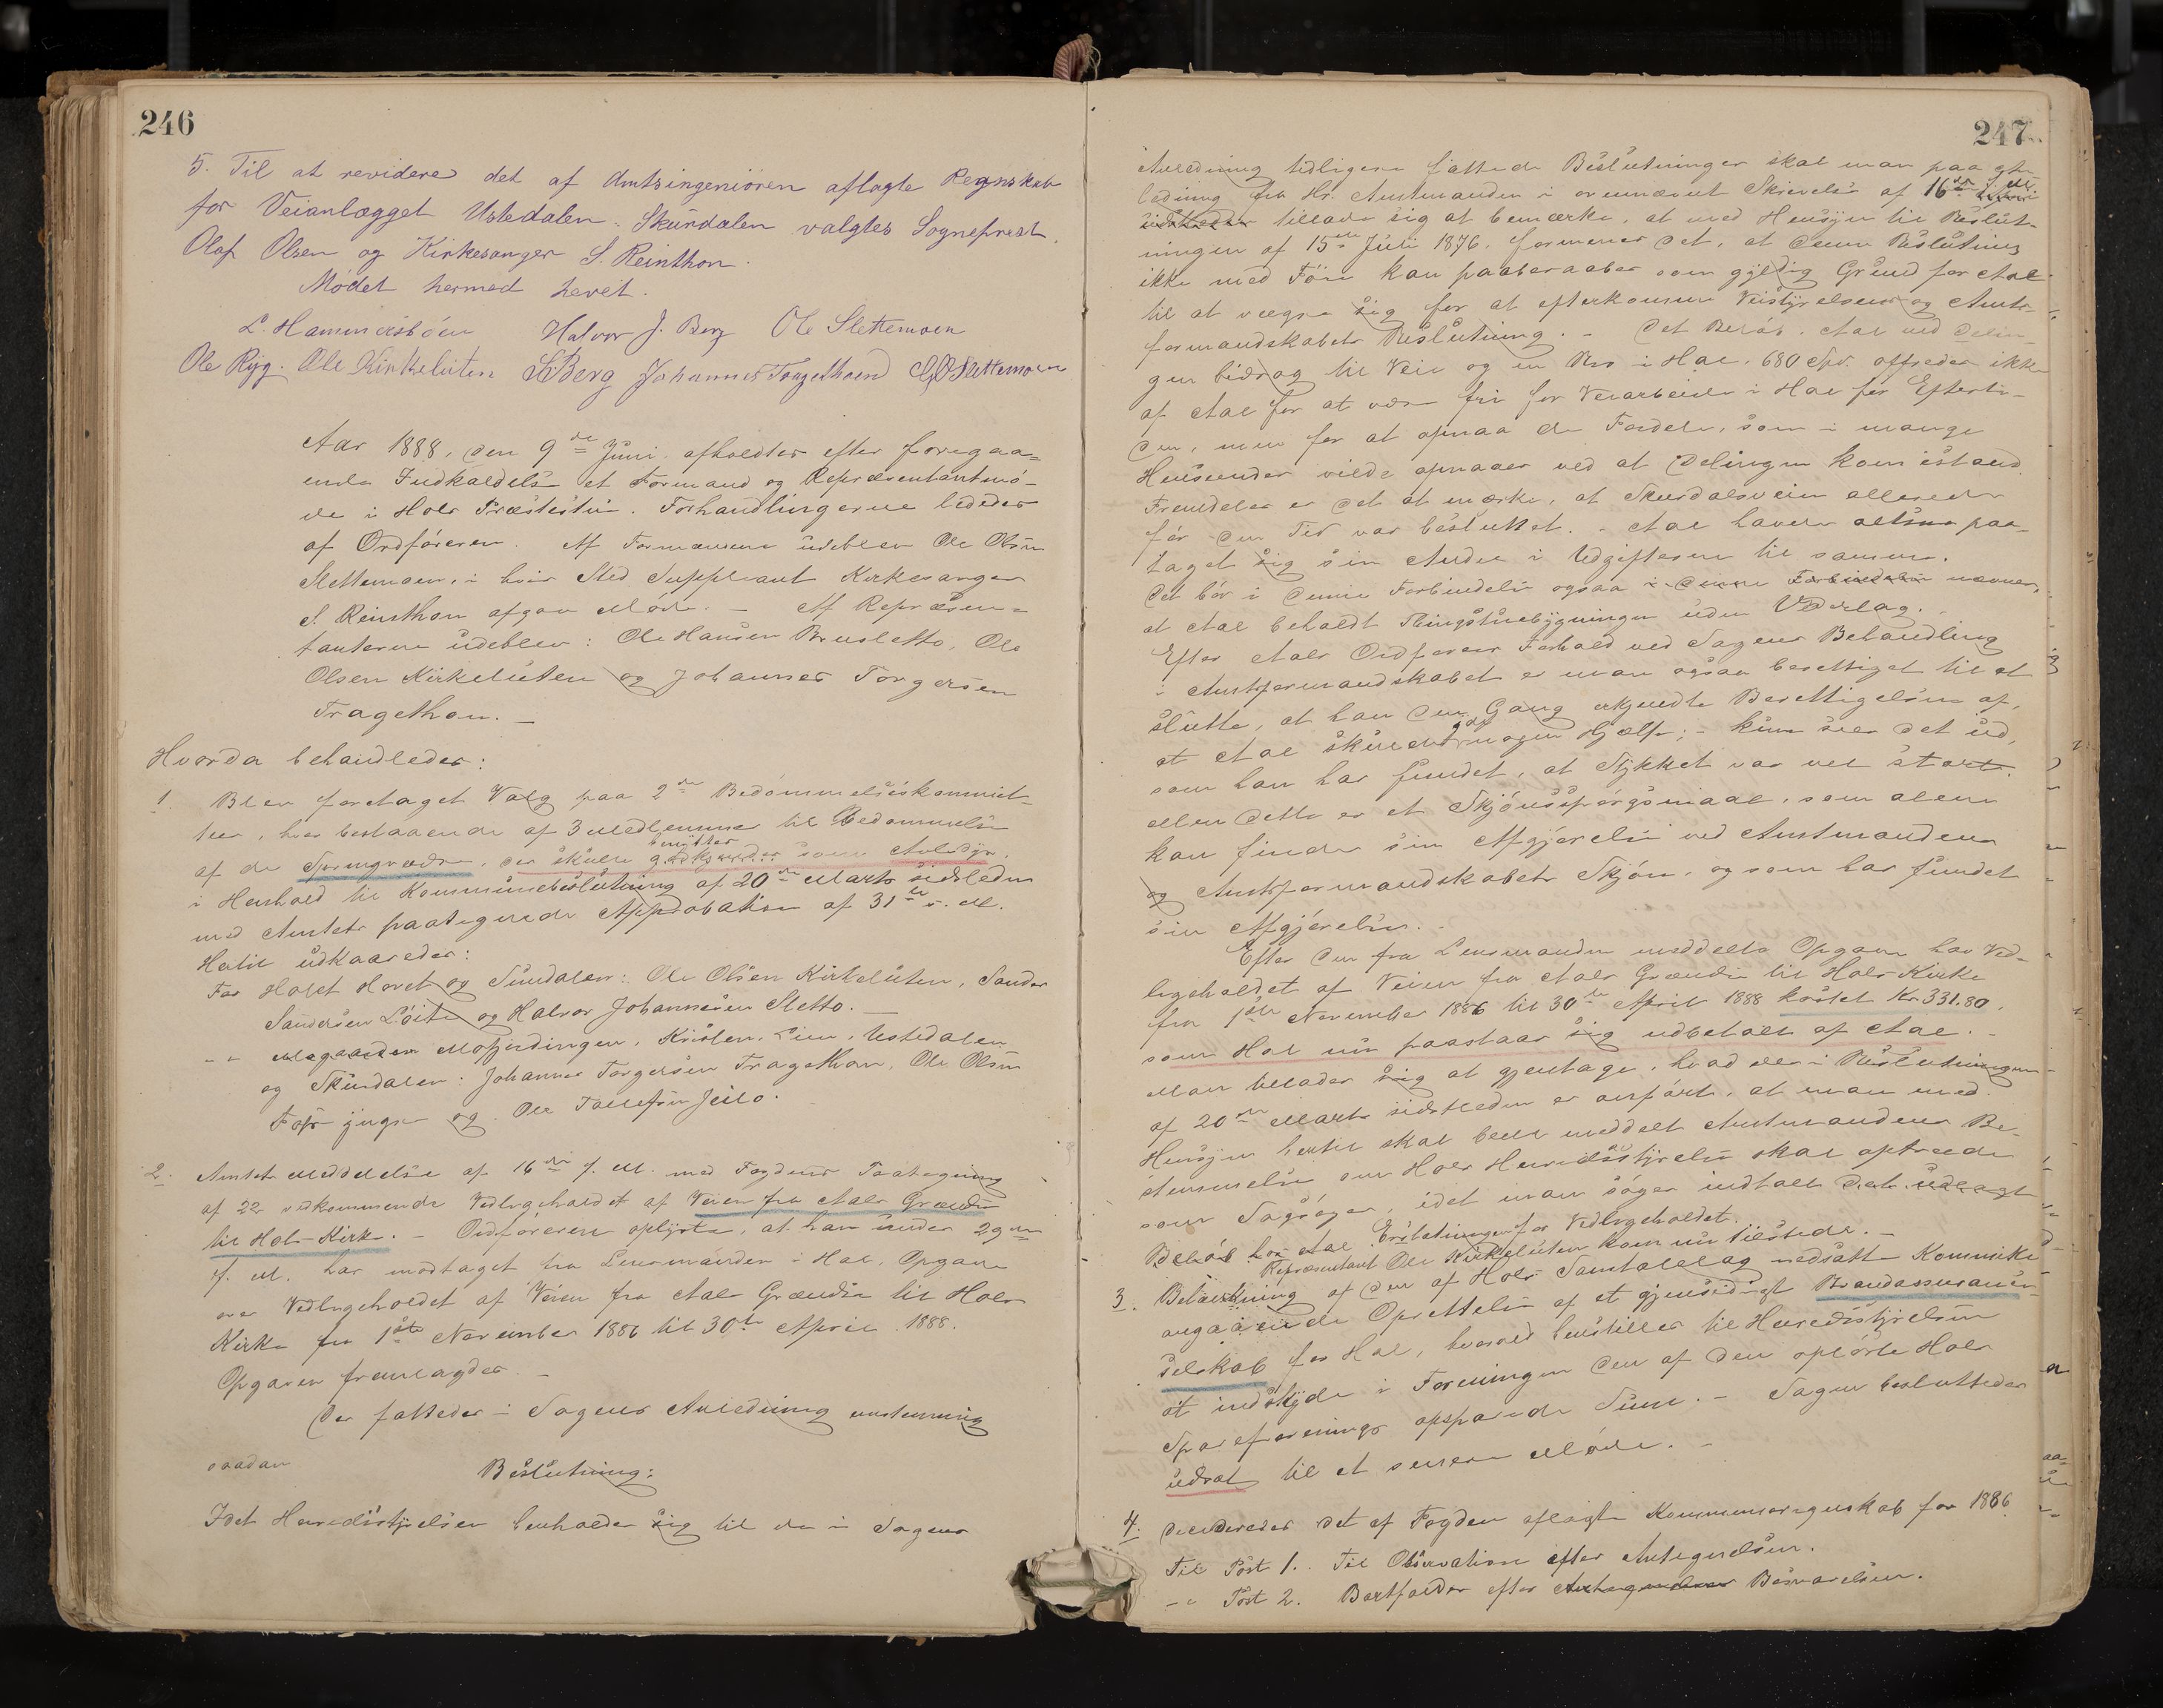 246
5. Til at revidere det af Amtsingeniören aflagte Regnskab
for Veianlægget Ustedalen-Skurdalen valgtes Sogneprest
Olaf Olsen og Kirkesanger S. Reinthon.
Mødet hermed hevet.
L. Hammersböen Halvor J. Berg Ole Slettemoen
Ole Ryg. Ole Kirkeluten Berg Johannes Tragethoen Slettemoen
Aar 1888, den 9de Juni, afholdtes efter foregaa=
ende Indkaldelse et Formand og Repræsentantmö-
de i Hols Præstestue. Forhandlingerne lededes
af Ordföreren. Af Formændene udeblev Ole Olsen
Slettemoen, i hvis Sted Suppleant Kirkesanger
S. Reinthon afgav Möde. – Af Repræsen=
tanterne udeblev: Ole Hansen Brusletto, Ole
Olsen Kirkeluten og Johannes Torgersen
Tragethon. –
Hvorda behandledes:
1. Blev foretaget Valg paa 2de Bedömmelseskommit=
teer, hver bestaaende af 3 Medlemmer til Bedömmelse
benyttes
af de , der skulle som Avlsdyr,
i Henhold til Kommunebeslutning af 20de Marts sidstleden
med Amtets paategnede Approbation af 31te s. M.
Hertil udkaaredes:
For Holet Hovet og Sundalen: Ole Olsen Kirkeluten, Sander
Sandersen Löite og Halvor Johannesen Sletto. –
-"- Mogaarden Mogjerdingen, Kristen. Lien, Ustedalen
og Skurdalen: Johannes Torgersen Tragethon, Ole Olsen
og Ole Tollefsen Jeilo.
2. Amtets Meddelelse af 16de f. M. med Fogdens Paategning
af 22 vedkommende Vedligeholdet af Veien fra Aals Grændse
til Hols Kirke. – Ordföreren oplyste, at han under 29de
f. M. har modtaget fra Lensmanden i Hol, Opgave
over Vedligeholdet af Veien fra Aals Grændse til Hols
Kirke fra 1ste November 1886 til 30te April 1888.
Opgaven fremlagdes. –
Der fattedes i Sagens Anledning enstemmig
saadan
Beslutning:
Idet Heredsstyrelsen henholder sig til de i Sagens
247
Anledning tidligere fattede Beslutninger skal man paa
ledning fra Hr. Amtmanden i ovennævnt Skrivelse af 16de f. M.
sidstleden tillade sig at bemærke, at med Hensyn til Beslut-
ningen af 15de Juli 1876, formenes det, at denne Beslutning
ikke med Föie kan paaberaabes som gyldig Grund for Aal
til at vægre sig for at efterkomme Veistyrelsens og Amts-
formandskabets Beslutning. – Det Belöb, Aal ved Delin-
gen bidrog til Veie og en Bro i Hol, 680 Spd. offredes ikke
af Aal for at være fri for Veiarbeide i Hol for Efterti-
den, men for at opnaa de Fordele, som i mange
Henseender vilde opnaaes ved at Delingen kom istand.
Fremdeles er det at mærke, at Skurdalsveien allerede
för den Tid var besluttet. – Aal havde altsaa paa-
taget sig sin Andel i Udgifterne til samme.
Det bör i denne Forbindelse ogsaa i denne Forbindelse nævnes,
at Aal beholdt Thingstuebygningen uden Vederlag.
Efter Aals Ordförers Forhold ved Sagens Behandling
i Amtsformandskabet er man ogsaa berettiget til at
slutte, at han den Gang erkjendte Berettigelsen af,
at Aal skulde nogen Hjælp; – kun sees det ud,
som han har fundet, at Stykket var vel stort.
Men dette er et Skjönsspörgsmaal, som alene
kan finde sin Afgjörelse ved Amtmandens
og Amtsformandskabets Skjön, og som har fundet
sin Afgjörelse. –
Efter den fra Lensmanden meddelte Opgave har Ved-
ligeholdet af Veien fra Aals Grændse til Hols Kirke
fra 1ste November 1886 til 30te April 1888 kostet Kr 331.80,
som Hol nu paastaar sig udbetalt af Aal. –
Man tillader sig at gjentage, hvad der i Beslutningen
af 20de Marts sidstleden er anfört, at man med
Hensyn hertil skal bede meddelt Amtmandens Be-
stemmelse om Hols Heredsstyrelse skal optræde
som Sagsöger, idet man söger indtalt det udlagt
Belöb hos Aal Erstatningen for Vedligeholdet.
Repræsentant Ole Kirkeluten kom nu tilstede. –
3. Betænkning af den af Hols Samtalelag nedsatte Kommite
angaaende Oprettelse af et gjensidigt Brandassurance-
selskab for Hol, hvorved henstilles til Heredsstyrelsen
at indskyde i Foreningen den af den oplöste Hols
Spareforenings opsparede Sum. – Sagen besluttedes
udsat til et senere Möde. –
4. Decideredes det af Fogden aflagte Kommuneregnskab for 1886.
Til Post 1. Til Observation efter Antegnelsen.
-"- Post 2. Bortfalder efter Antegnelsens Besvarelsen.